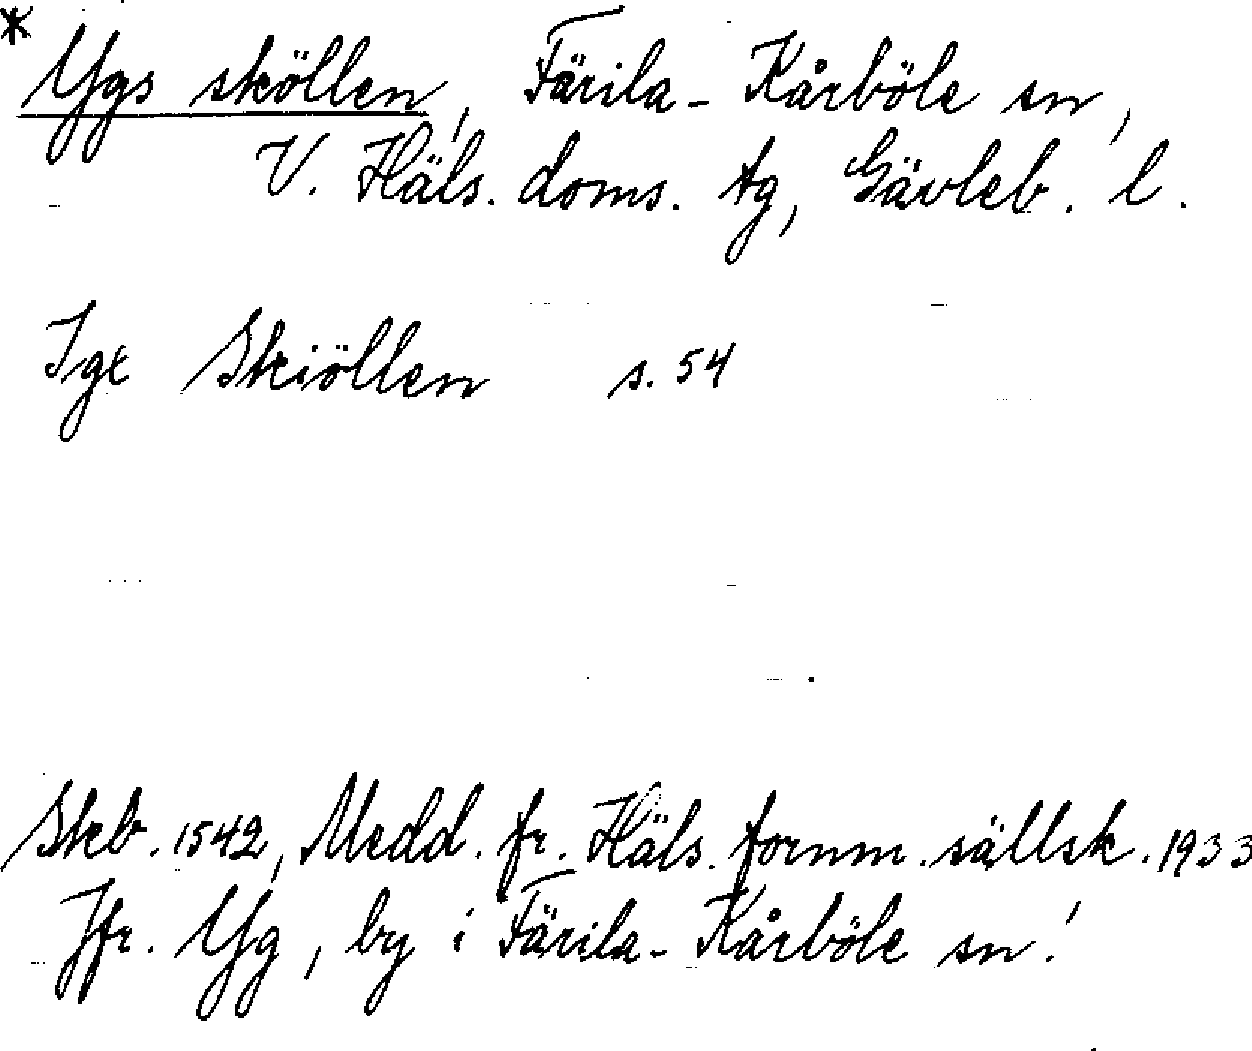 * Ygs sköllen, Färila-Kårböle sn,
V. Häls. doms. tg, Gävleb. l.
Ige Skiöllen s. 54
Skb. 1542, Medd. fr. Häls. fornm. sällsk. 1933
Jfr. Yg, by i Färila-Kårböle sn!